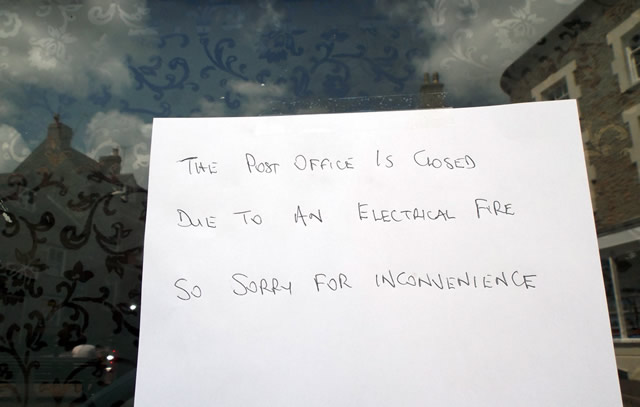 THE POST OFFICE IS CLOSED
DUE TO AN ELECTRICAL FIRE
SO SORRY FOR INCONVENIENCE